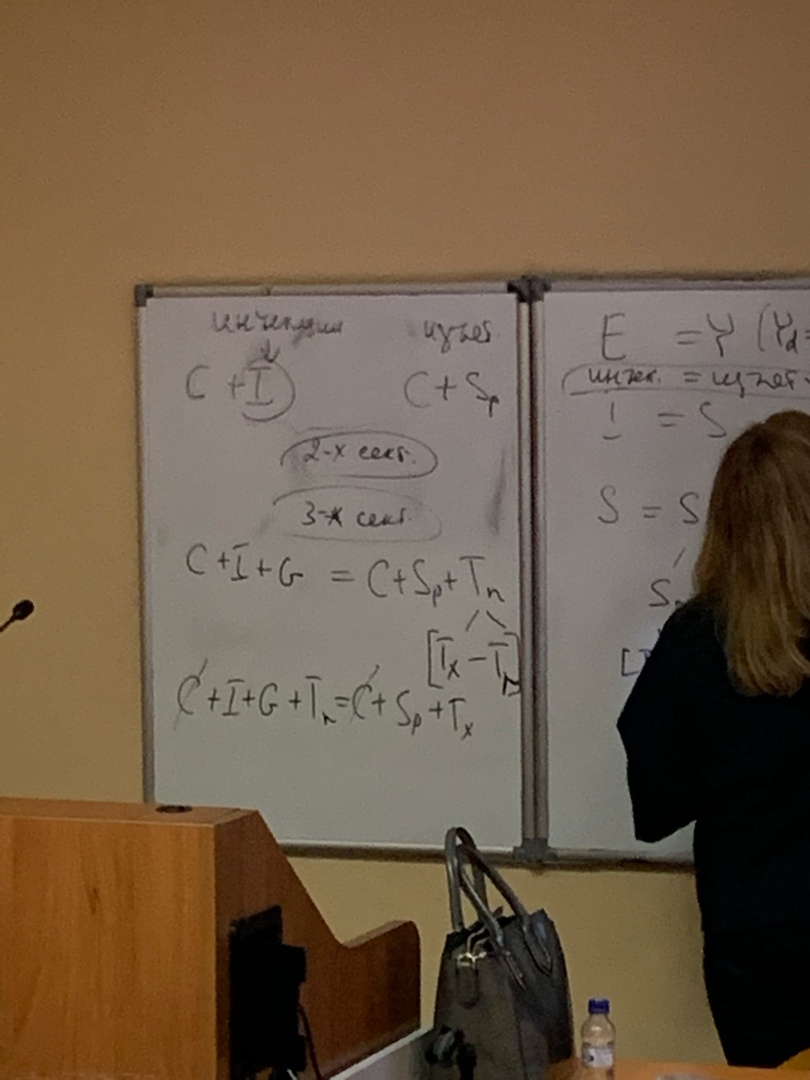 инъекции изъят.
C + I C + Sp
2-х сект.
3-х сект.
C + I + G = C + Sp + Tn
[Tx - Tr]
C + I + G + Tr = C + Sp + Tx
E = Y (Yd =
инъек. = изъят.
I = S
S = S